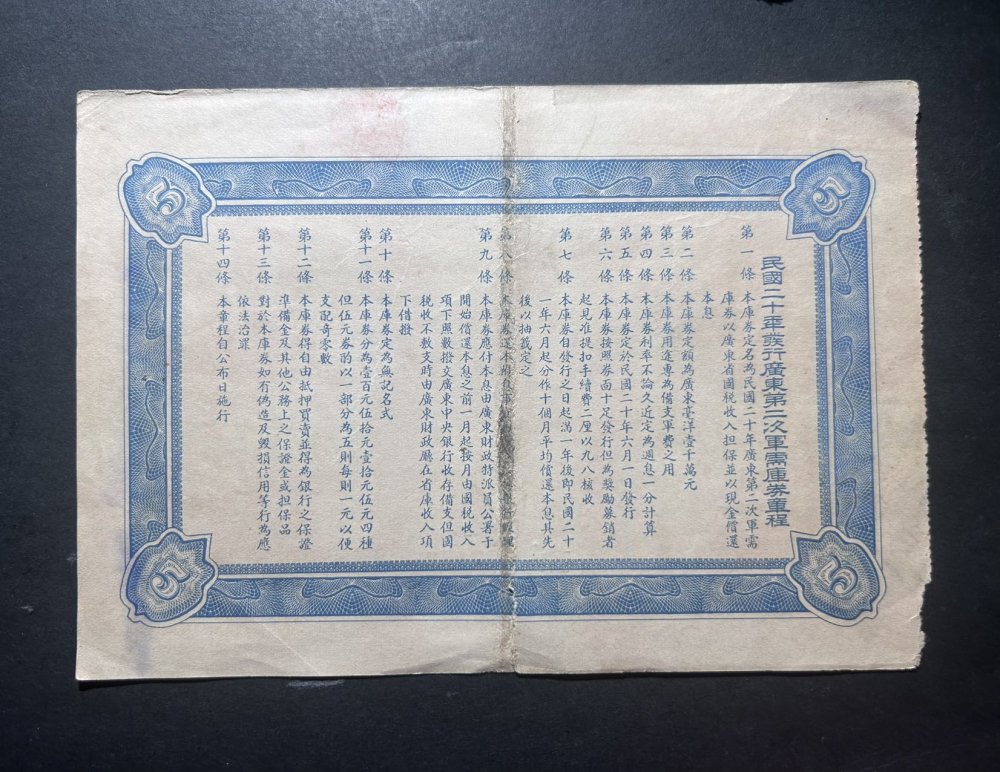 民國二十年發行廣東第二次軍需庫券章程
第一條 本庫券定名為民國二十年廣東第二次軍需
庫券以廣東省國稅收入担保並以現金償還
本息
第二條 本庫券定額為廣東毫洋壹千萬元
第三條 本庫券用途專為借支軍費之用
第四條 本庫券利率不論久近定為週息一分計算
第五條 本庫券定於民國二十年六月一日發行
第六條 本庫券按照券面十足發行但為獎勵募銷者
起見准提扣手續費二厘以九八核收
第七條 本庫券自發行之日起滿一年後即民國二十
一年六月起分作十個月平均償還本息其先
後以抽籤定之
第八條 本庫券還本付息
第九條 本庫券應付本息由廣東財政特派員公署于
開始償還本息之前一月起按月由國稅收入
項下照數撥交廣東中央銀行收存備支但國
稅收不敷支時由廣東財政廳在省庫收入項
下借撥
第十條 本庫券定為無記名式
第十一條 本庫券分為壹百元伍拾元壹拾元伍元四種
但伍元券的以一部分為五則每則一元以便
支配奇零數
第十二條 本庫券得自由抵押買賣並得為銀行之保證
準備金及其他公務上之保證金或担保品
第十三條 對於本庫券如有偽造及毀損信用等行為應
依法治罪
第十四條 本章程自公布日施行
5
5
5
5